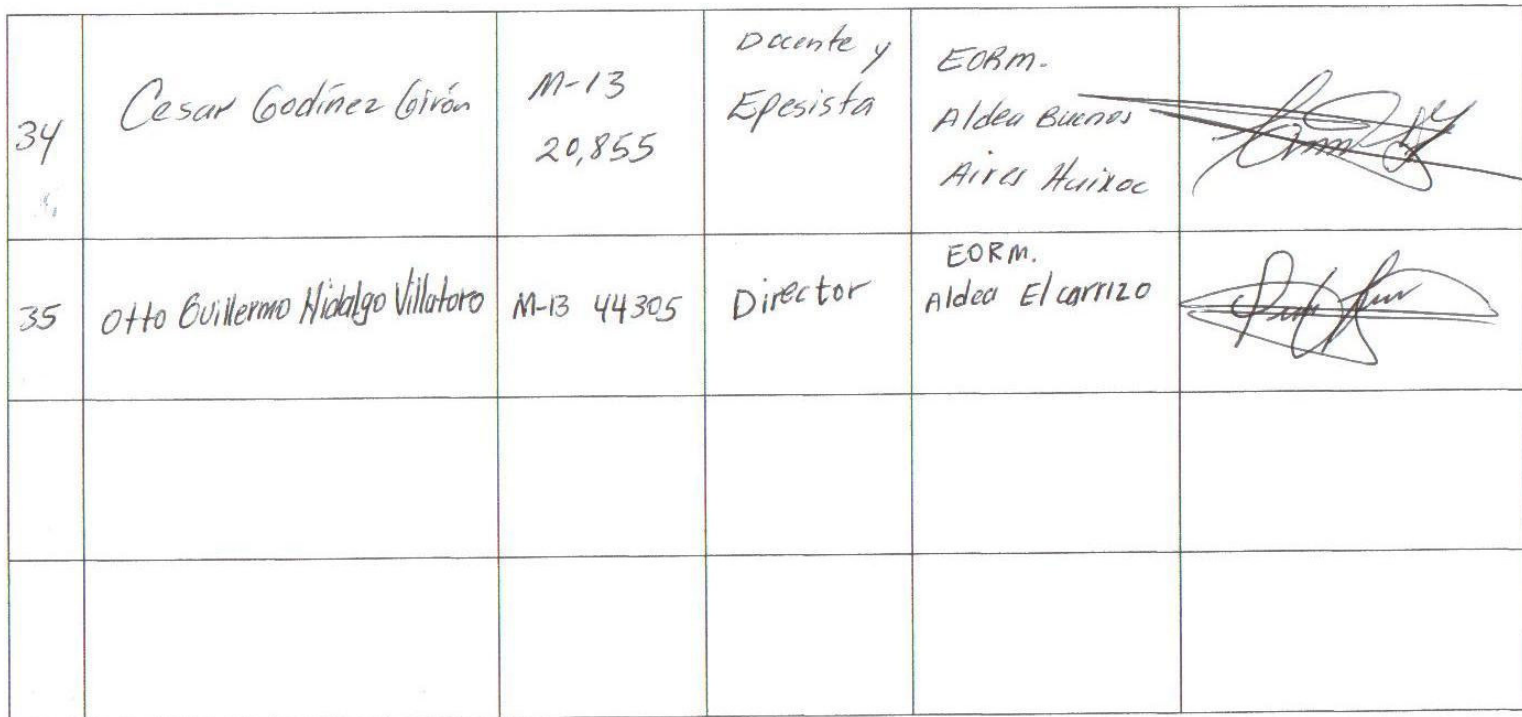 34
Cesar Godínez Girón
M-13
20,855
Docente y
Epesista
EORM.
Aldea Buenos
Aires Huixoc
35
Otto Guillermo Hidalgo Villatoro
M-13 44305
Director
EORM.
Aldea El carrizo